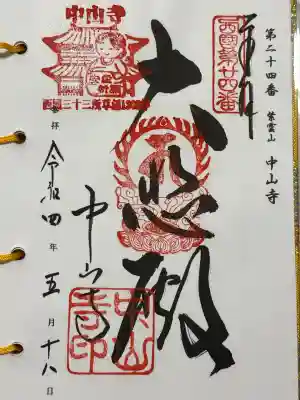 第二十四番 紫雲山 中山寺
奉拝
西國第廿四番
大悲殿
中山寺
西国三十三所草創1300年
中山寺
中山寺印
拝 令和四年五月十八日